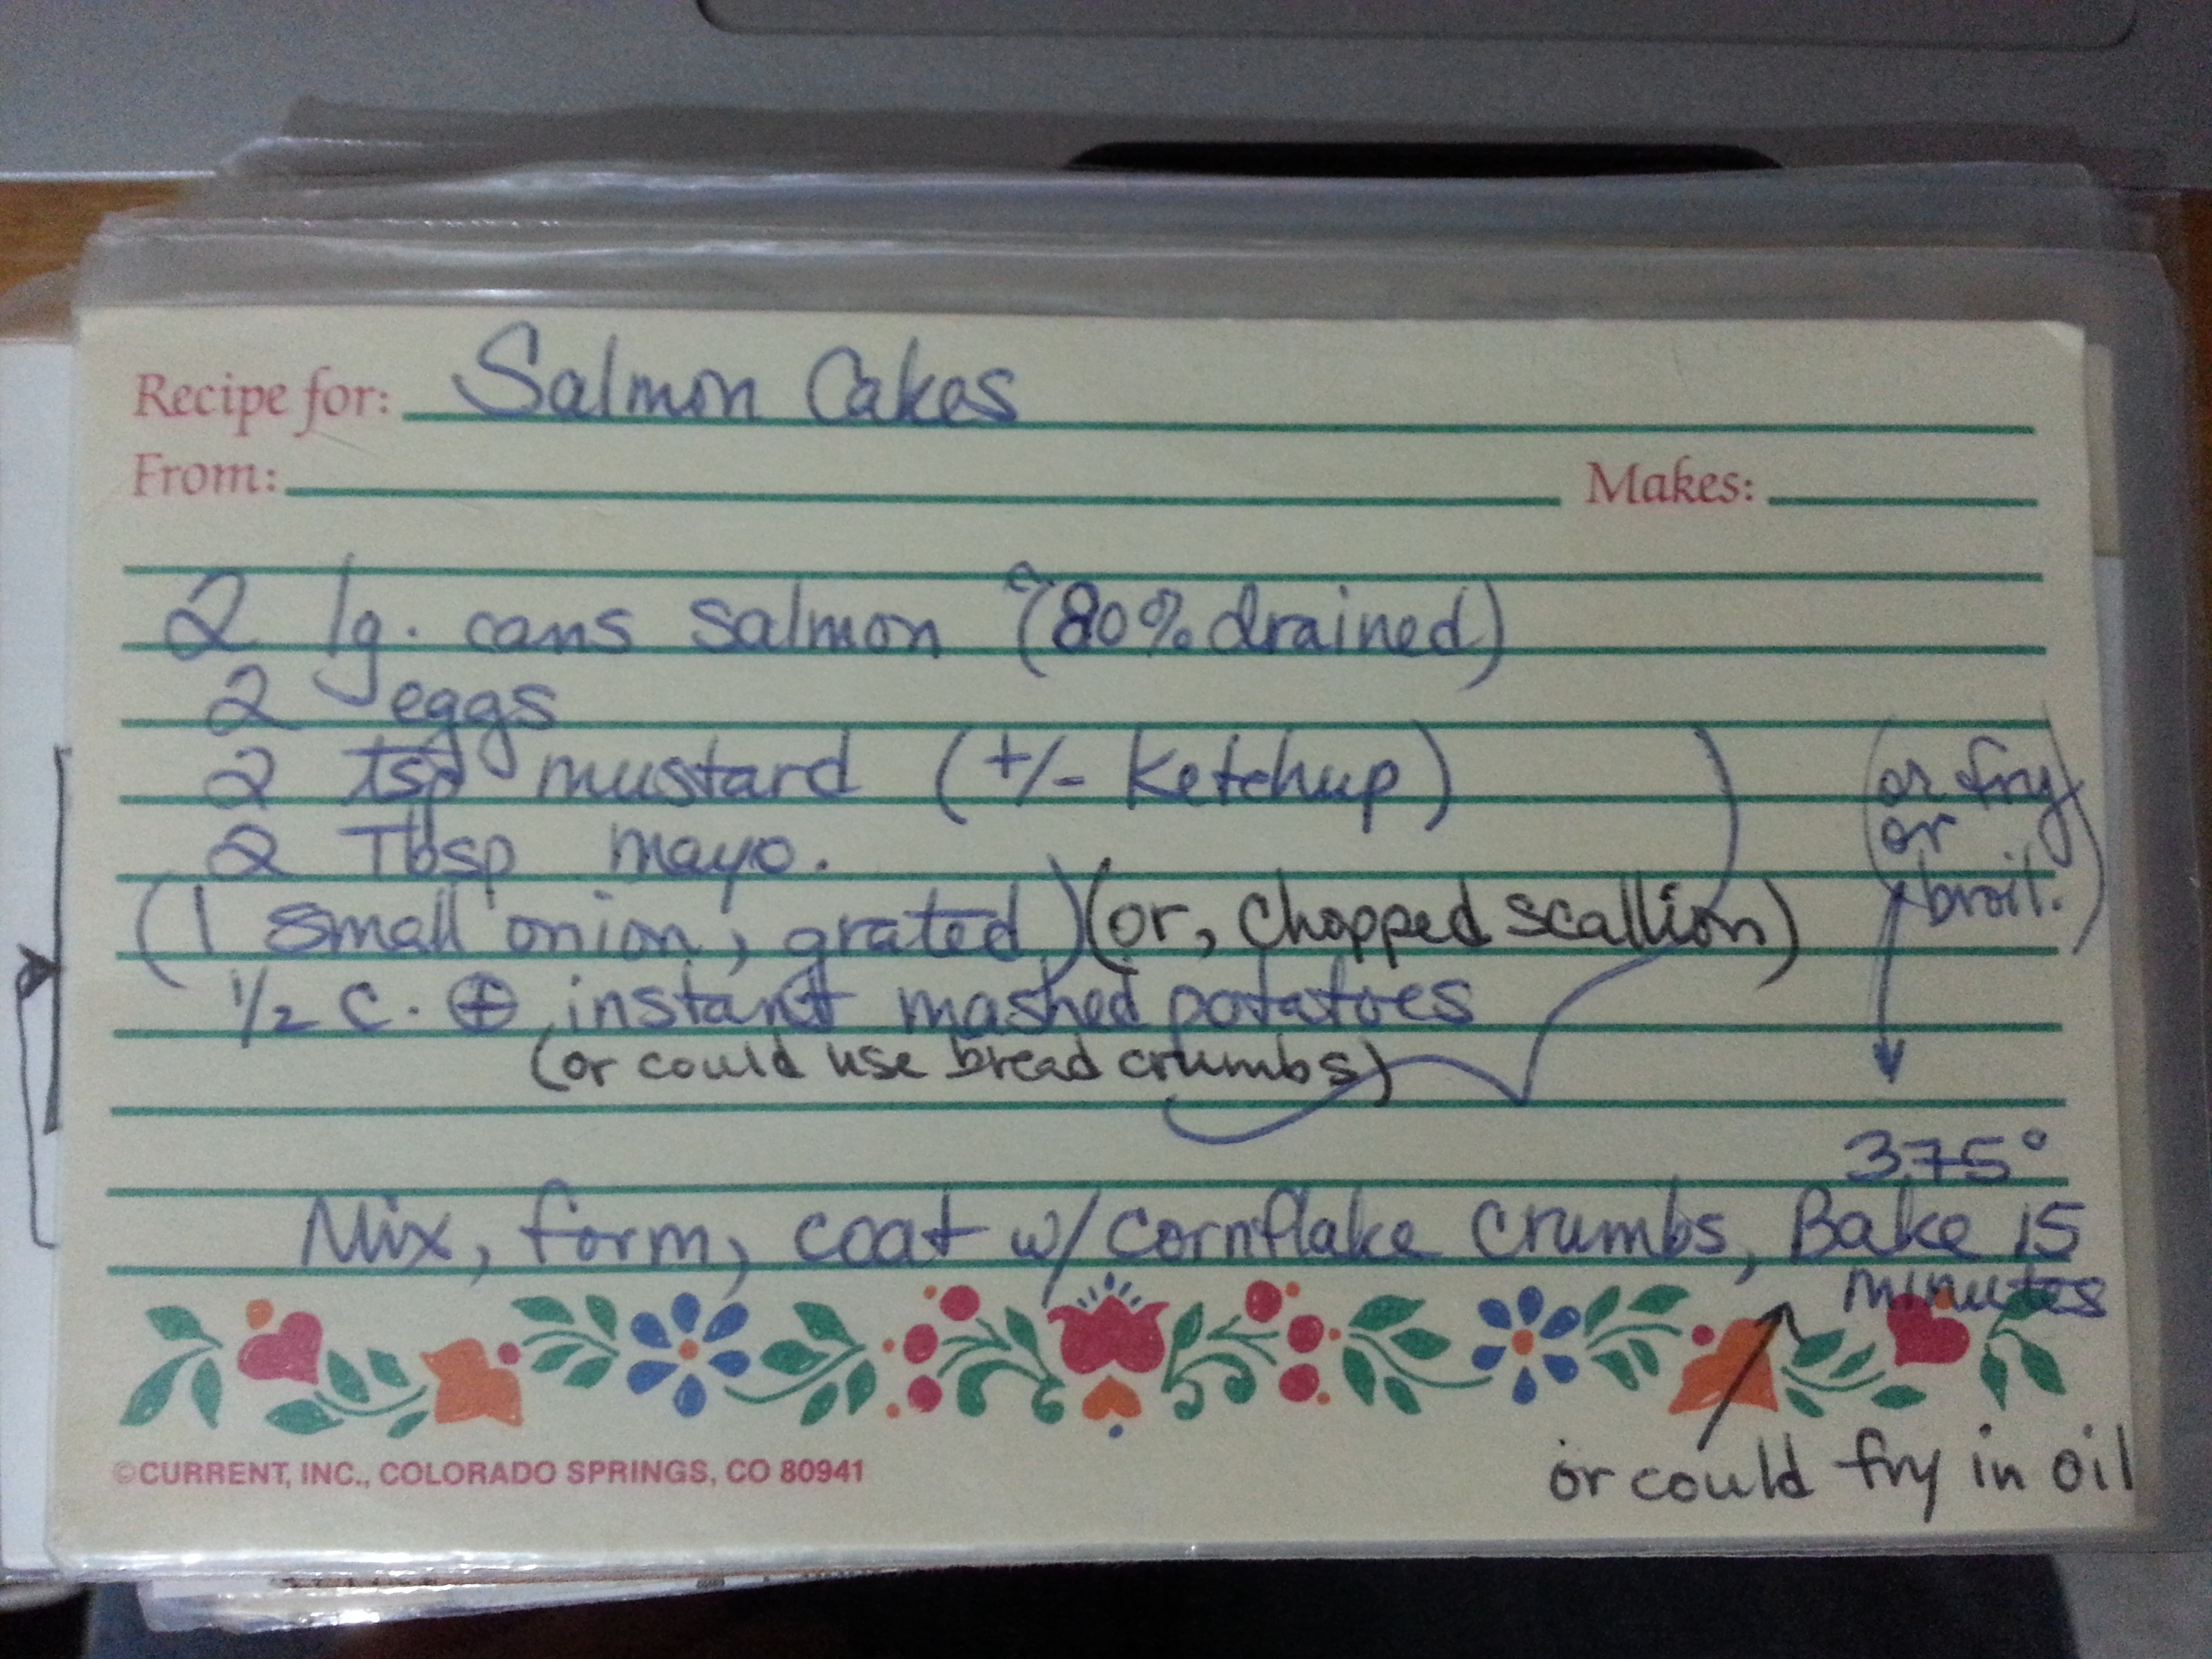 Recipe for: Salmon Cakes
From: Makes:
2 lg. cans salmon (80% drained)
2 eggs
2 tsp mustard (+/- Ketchup)
2 Tbsp mayo.
(1 small onion, grated) (or, chopped scallion)
1/2 c. ⊕ instant mashed potatoes
(or could use bread crumbs)
(or fry
or
broil.)
375°
Mix, form, coat w/ cornflake crumbs, Bake 15
minutes
or could fry in oil
©CURRENT, INC., COLORADO SPRINGS, CO 80941